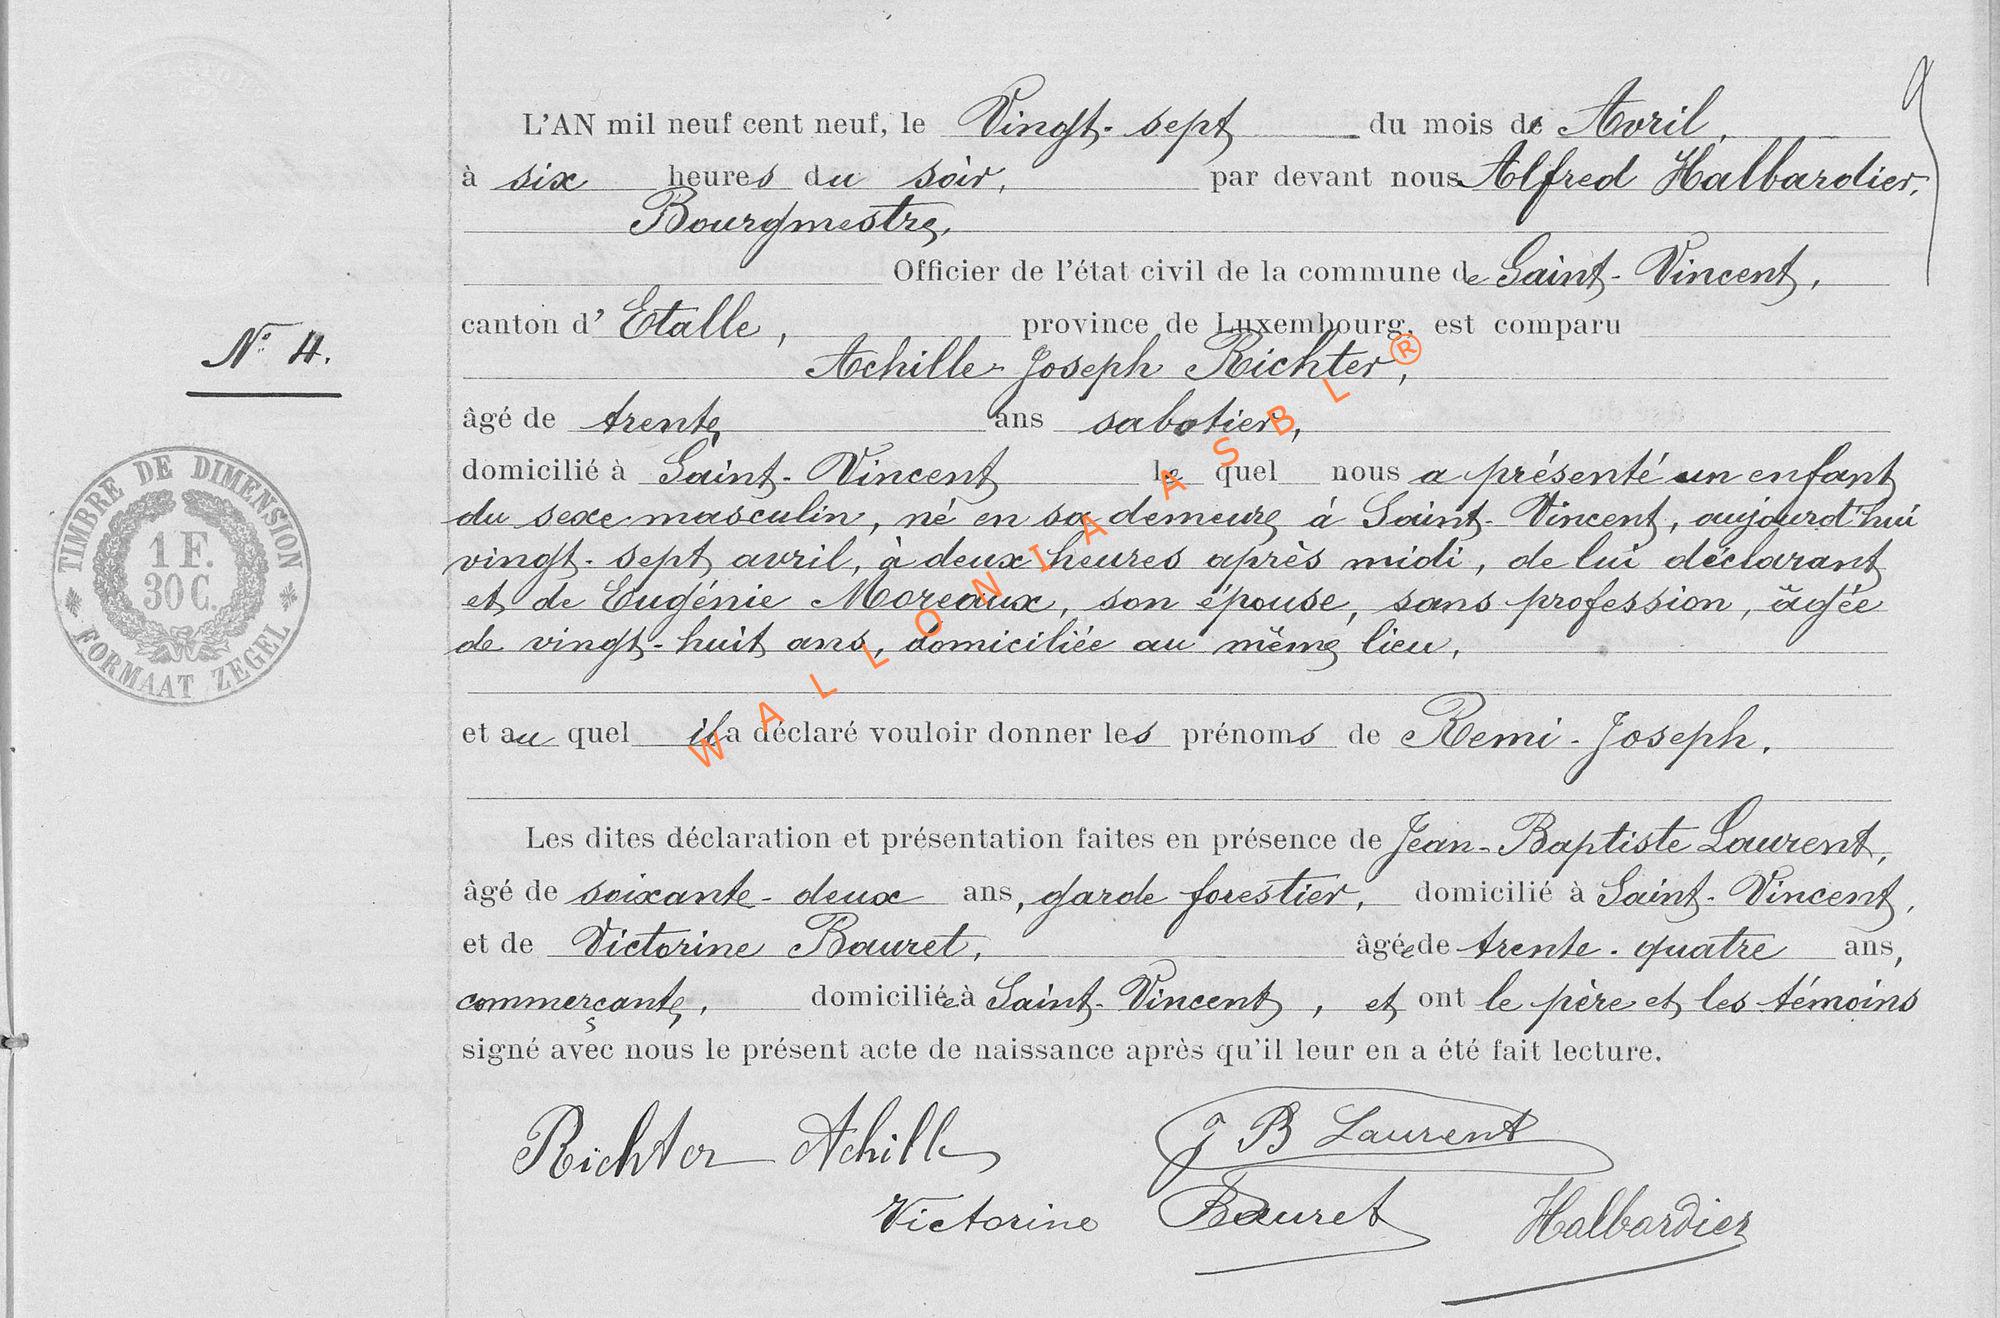 L'AN mil neuf cent neuf, le Vingt-sept du mois de Avril,
à six heures du soir, par devant nous Alfred Halbardier,
Bourgmestre,
Officier de l'état civil de la commune de Saint-Vincent,
canton d' Etalle, province de Luxembourg, est comparu
N° 4.
Achille-Joseph Richter,
âgé de trente ans sabotier,
domicilié à Saint-Vincent le quel nous a présenté un enfant
du sexe masculin, né en sa demeure à Saint-Vincent, aujourd'hui
vingt-sept avril, à deux heures après midi, de lui déclarant
et de Eugénie Moreaux, son épouse, sans profession, âgée
de vingt-huit ans, domiciliée au même lieu,
TIMBRE DE DIMENSION
1 F.
30 C.
FORMAAT ZEGEL
et au quel il a déclaré vouloir donner les prénoms de Remi-Joseph.
Les dites déclaration et présentation faites en présence de Jean-Baptiste Laurent,
âgé de soixante-deux ans, garde forestier, domicilié à Saint-Vincent,
et de Victorine Bauret, âgée de trente-quatre ans,
commerçante, domiciliée à Saint-Vincent, et ont le père et les témoins
signé avec nous le présent acte de naissance après qu'il leur en a été fait lecture.
Richter Achille
J B Laurent
Victorine Bauret
Halbardier
WALLONIA ASBL®